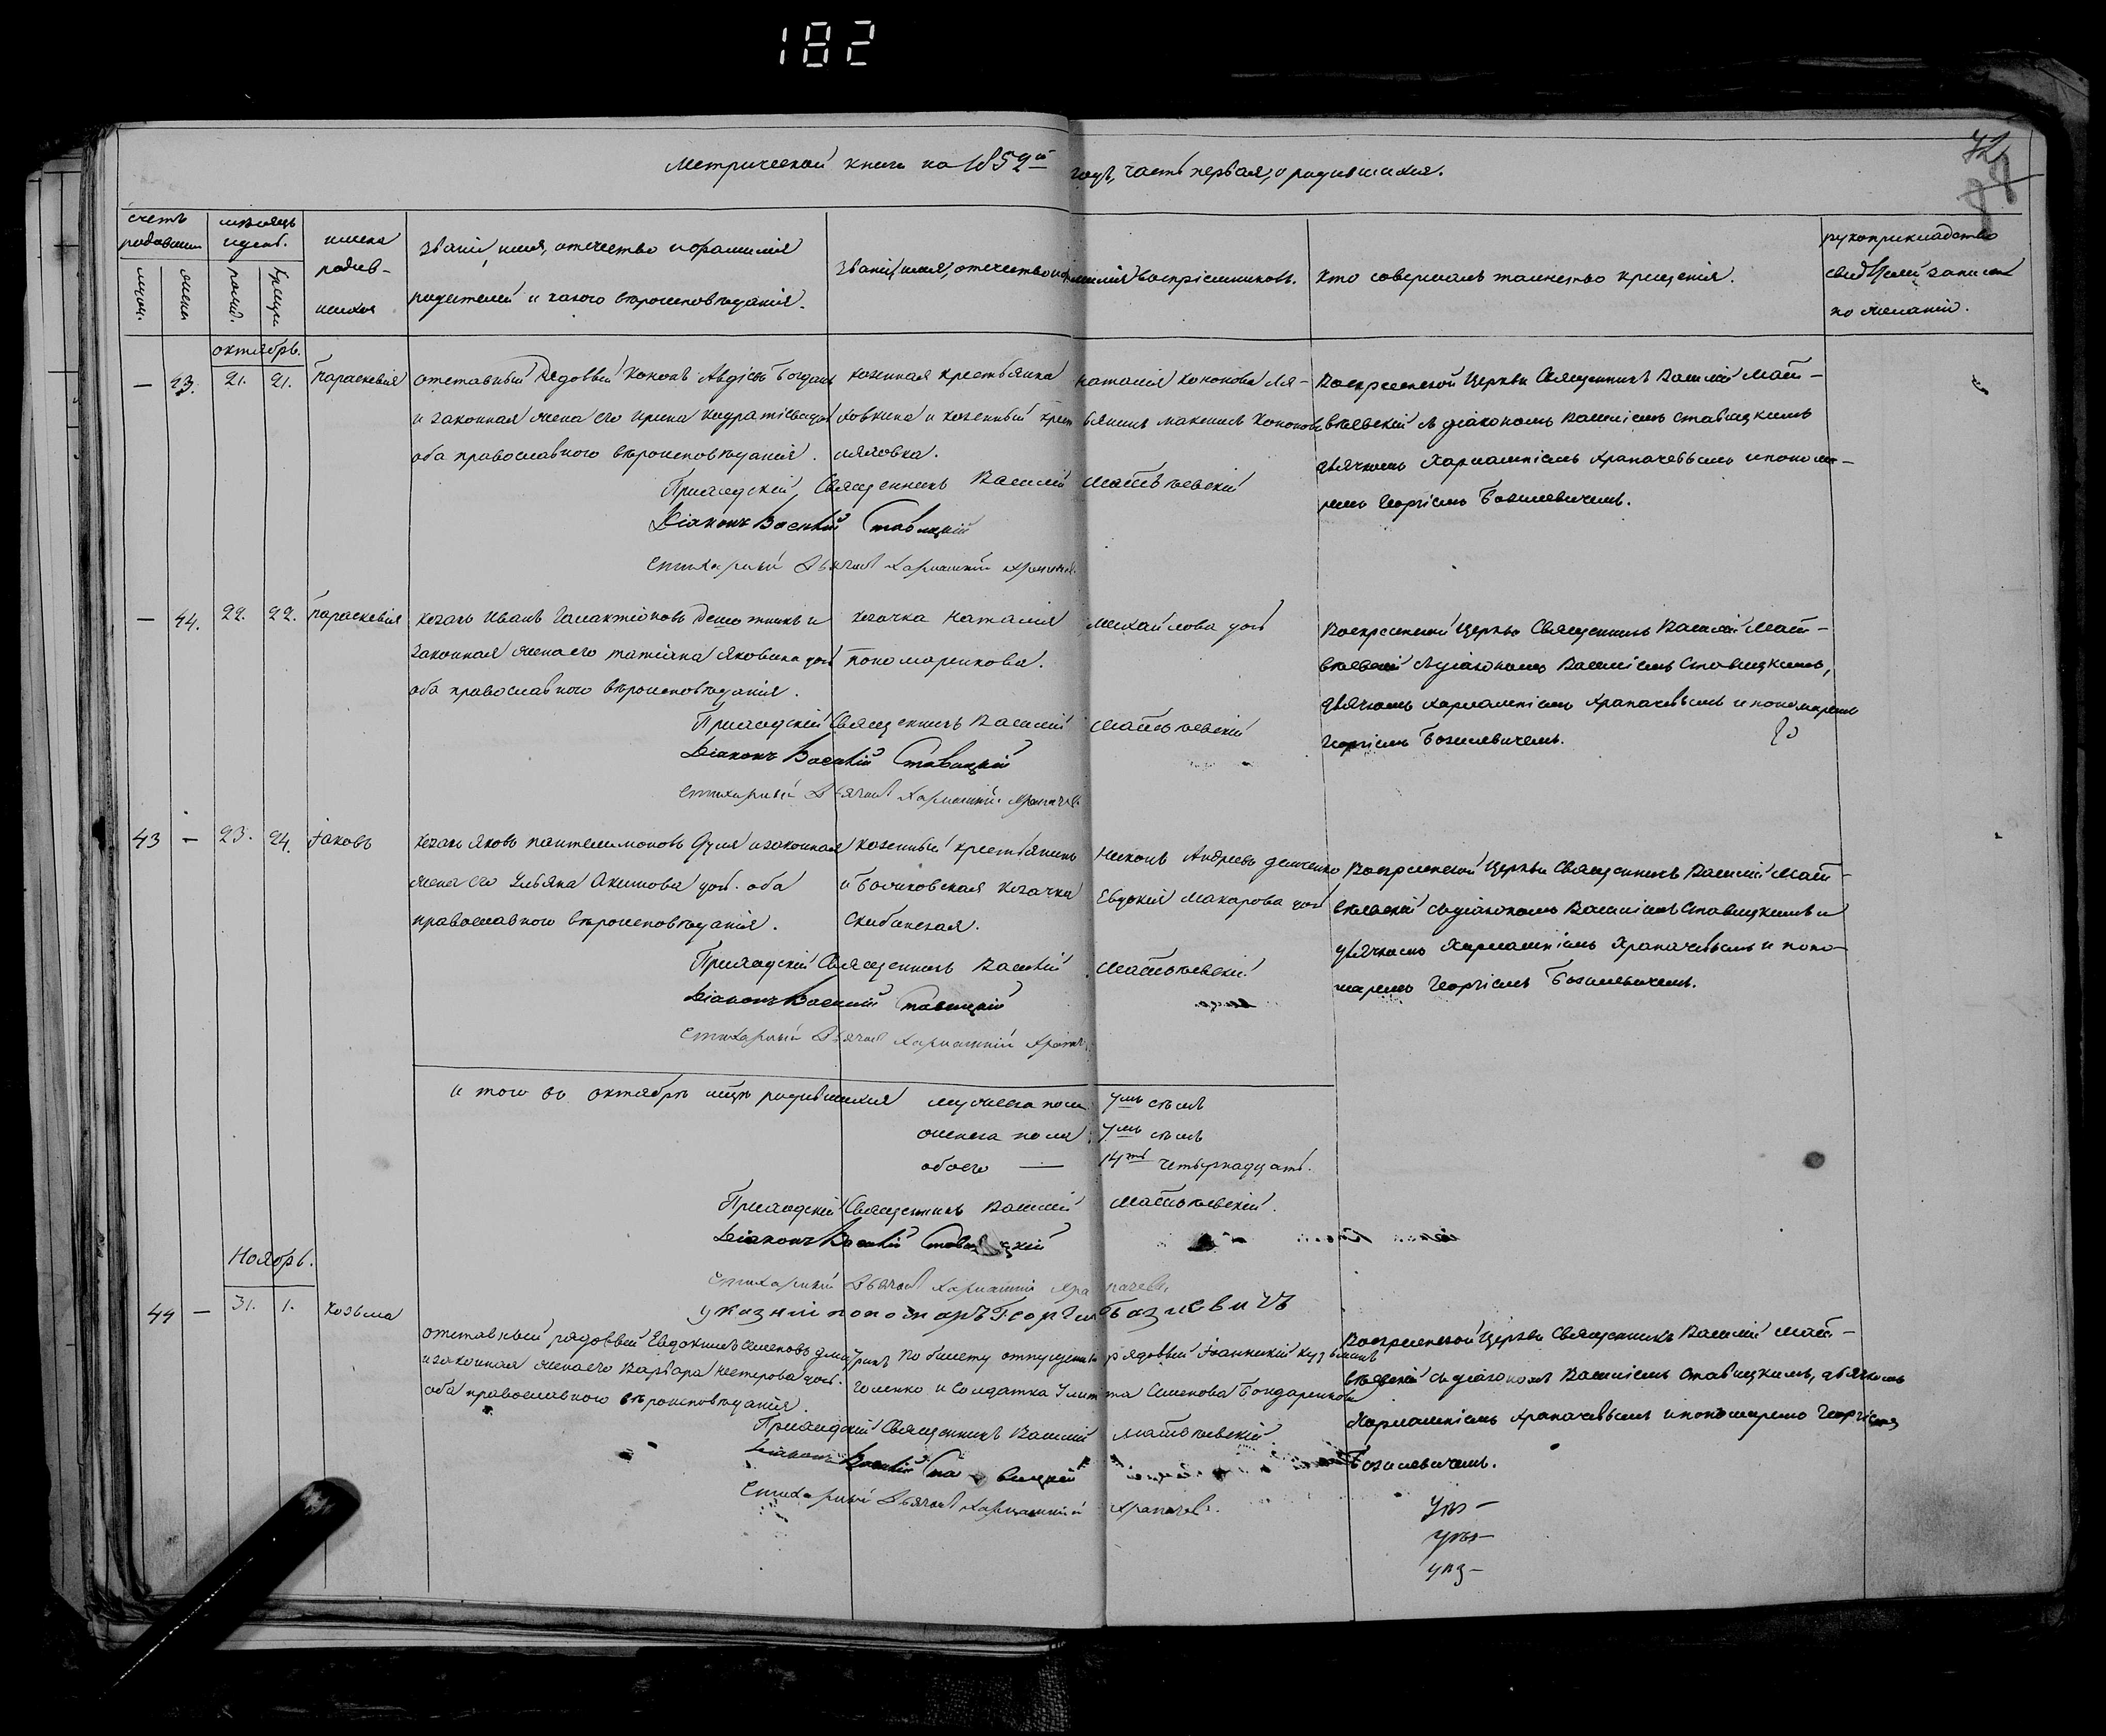 182
Метрической книги на 1852й годъ, часть первая, о родившихся.
72
счетъ родившихся
мѣсяцъ и день.
имена родив-
шихся
званіе, имя, отечество и фамилія
родителей и какого вѣроисповѣданія.
званіе, имя, отечество и фамилія воспріемниковъ.
кто совершалъ таинство крещенія.
рукоприкладство
свидѣтелей записи
по желанію.
мужск.
женск.
рожд.
крещен.
октябрь.
— 43. 21. 21. Параскевія
отставный Рядовый Кононъ Авдіевъ Богданъ
и законная жена его Ирина Кодратіева дочь
оба православного вѣроисповѣданія.
казенная крестьянка Наталія Кононова Ля-
ховкина и казенный крестьянинъ Максимъ Кононовъ
Ляховка.
Воскресенской Церкви Священникъ Василій Мат-
вѣевскій съ діакономъ Василіемъ Ставицкимъ
дьячкомъ Харлампіемъ Храпачевымъ и понома-
ремъ Георгіемъ Базилевичемъ.
Приходскій Священникъ Василій Матвѣевскій
Діаконъ Василій Ставицкій
Стихарный Дьячокъ Харлампій Храпачев
— 44. 22. 22. Параскевія
козакъ Иванъ Галактіоновъ и
законная жена его Татіана Яковлева дочь
оба православного вѣроисповѣданія.
козачка Наталія Михайлова дочь
Пономаренкова.
Воскресенской Церкви Священникъ Василій Мат-
вѣевскій съ діакономъ Василіемъ Ставицкимъ,
дьячкомъ Харлампіемъ Храпачевымъ и пономаремъ
Георгіемъ Базилевичемъ.
Приходскій Священникъ Василій Матвѣевскій
Діаконъ Василій Ставицкій
Стихарный Дьячокъ Харлампій Храпачев
43 — 23. 24. Іаковъ
козакъ Яковъ Пантелимоновъ Дуля и законная
жена его Ульяна Акимова дочь. оба
православного вѣроисповѣданія.
казенный крестьянинъ Никонъ Андреевъ Демченко
и козачка Евдокія Макарова дочь
Скибинская.
Воскресенской Церкви Священникъ Василій Мат-
вѣевскій съ діакономъ Василіемъ Ставицкимъ и
дьячкомъ Харлампіемъ Храпачевымъ и поно-
маремъ Георгіемъ Базилевичемъ.
Приходскій Священникъ Василій Матвѣевскій
Діаконъ Василій Ставицкій
Стихарный Дьячокъ Харлампій Храпач
и того во октябрѣ мцѣ родившихся мужеска пола 7мь семь
женска пола 7мь семь
обоего — 14ть четырнадцать.
Приходскій Священникъ Василій Матвѣевскій.
Діаконъ Василій Ставицкій
Стихарный Дьячокъ Харлампій Храпачевъ
указній пономаръ Георгій Базилевичъ
Ноябрь.
44 — 31. 1. Козьма
отставный рядовый Евдокимъ Семеновъ
и законная жена его Варвара Нестерова дочь.
оба православного вѣроисповѣданія.
по билету отпущенный рядовый Іоанникій Кузьминъ
и Солдатка Улита Семенова Бондаренкова
Воскресенской Церкви Священникъ Василій Мат-
вѣевскій съ діакономъ Василіемъ Ставицкимъ, дьячкомъ
Харлампіемъ Храпачевымъ и пономаремъ Георгіемъ
Базилевичемъ.
Приходскій Священникъ Василій Матвѣевскій
Діаконъ Василій Ставицкій
Стихарный Дьячокъ Харлампій Храпачевъ.